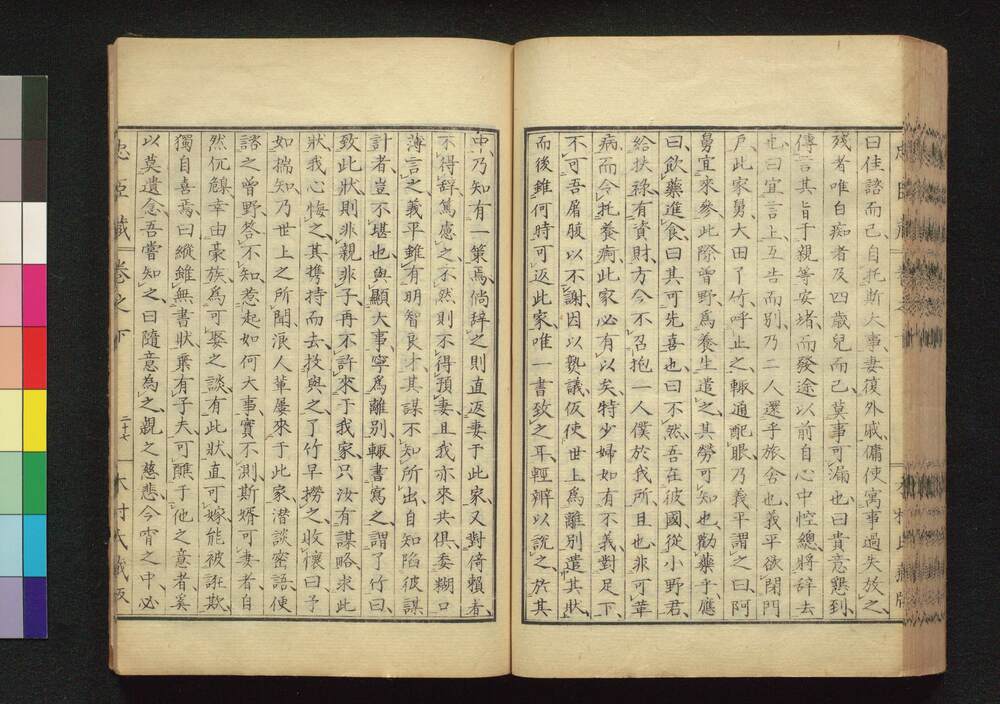 曰佳諮而已自托斯大事妻復外戚傭使寓事過失放之
殘者唯白痴者及四歲兒而已莫事可漏也曰貴意懇到
傳言其旨于親等安堵而發途以前自心中悾總將辞去
也曰宜言上互告而別乃二人還乎旅舍也義平欲閉門
戶此家舅大田了竹呼止之輙通配眼乃義平謂之曰阿
舅宜來參此際曾野為養生遣之其勞可知也勸藥乎應
曰飲藥進食曰其可先喜也曰不然吾在彼國從小野君
給扶祿有資財方今不召抱一人僕於我所且也非可葦
病而今托養痾此家必有以矣特少婦如有不義對足下
不可吾屠腹以不謝因以熟議仮使世上為離別遣其狀
而後雖何時可返此家唯一書致之耳輕辨以說之於其
中乃知有一策焉倘辞之則直返妻于此家又對倚賴者
不得辞篤慮之不然則不得預妻且我亦來共俱委糊口
薄言之義平雖有明智良才其謀不知所出自知陷彼謀
計者豈不堪也與顯大事寧為離別輙書寫之謂了竹曰
致此狀則非親非子再不許來于我家只汝有謀略求此
狀我心悔之其携持而去投與之了竹早撈之收懷曰予
如揣知乃世上之所聞浪人輩屢來于此家潜談密語使
諮之曾野答不知惹起如何大事實不測斯婿可妻者自
然伉䫥幸由豪族為可娶之談有此狀直可嫁能被誑欺
獨自喜焉曰縱雖無書狀棄有子夫可醮于他之意者奚
以莫遺念吾嘗知之曰隨意為之親之慈悲今宵之中必
忠臣藏 卷之下 二十七 木村氏藏版